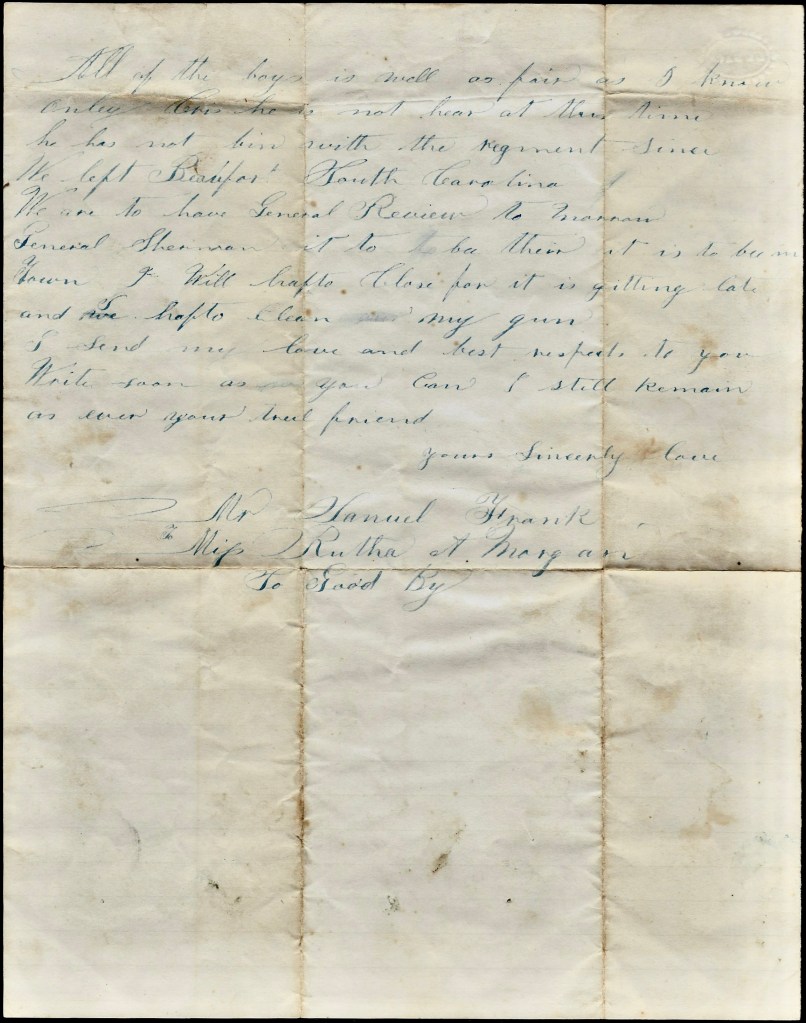 All of the boys is well as fair as I know
Onley Cris he is not hear at this time
he has not bin with the regment since
We left Beaufort South Carolina
We are to have General Review to morrow
General Sherman to be their it is to be in
Town I Will hafto Close for it is gitting late
and I hafto Clean my gun
I send my love and best respects to you
Write soon as you Can I still Remain
as ever your true friend
yours Sincerly love
Mr Samuel Frank
To Miss Rutha A. Morgan
So Good By